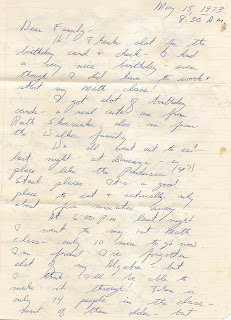 May 15, 1973
8:30 A.m.
Dear Family,
Hi! Thanks alot for the
birthday card & check - I had
a very nice birthday - even
though I did have to work &
start my Math class!
I got alot of birthday
cards - a real cute one from
Ruth Shoemaker, also one from
the Walker family.
We all went out to eat
last night at Bonanza - a
place like the Ponderosa (sp?)
Steak places. It's a good
place to eat & actually only
about five minutes
At 6:00 P.M. last night
I went to my 1st Math
class - only 10 more to go now
I'm afraid I've forgotten
alot of my Algebra - but
I think I'll be able to
make it through. There is
only 14 people in the class -
most of them older but